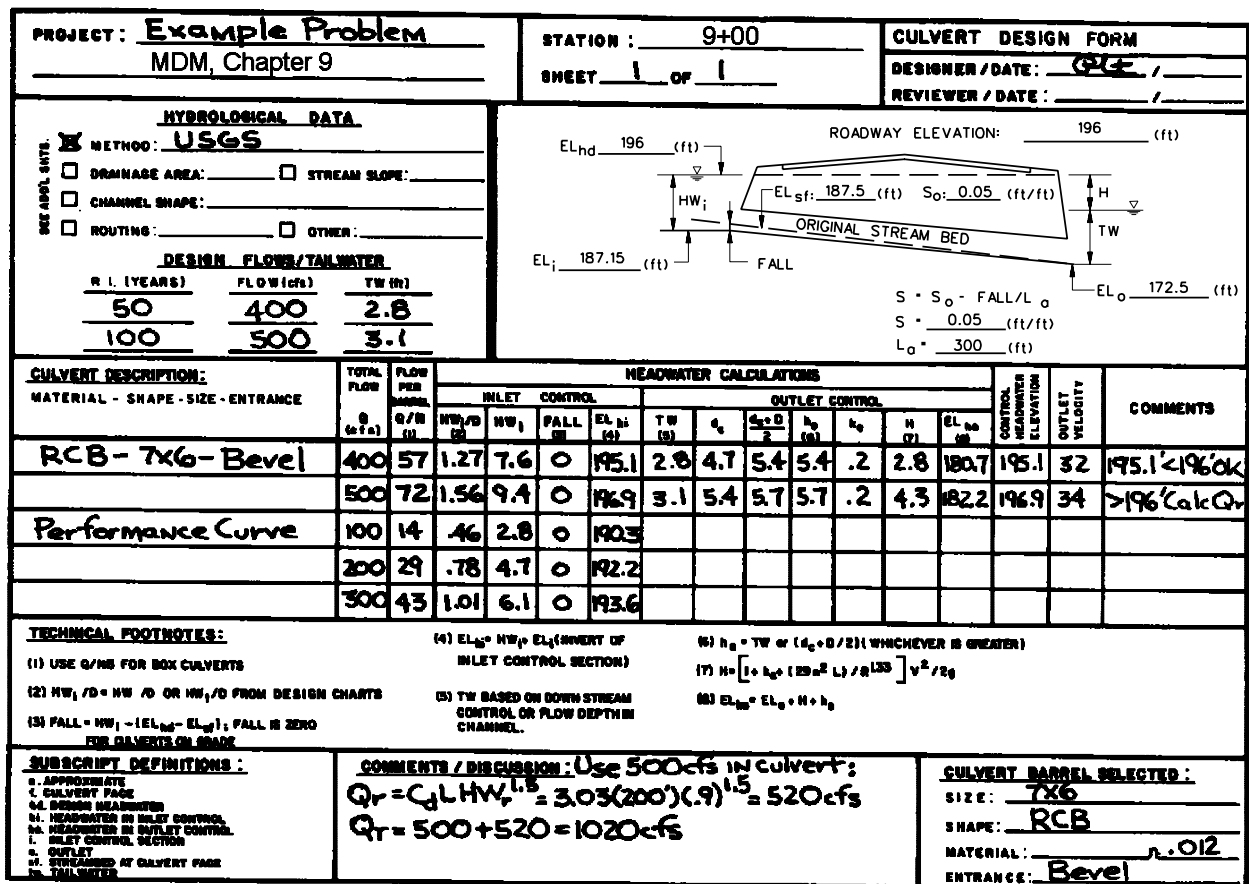 PROJECT: Example Problem
MDM, Chapter 9
STATION: 9+00
SHEET 1 OF 1
CULVERT DESIGN FORM
DESIGNER/DATE: /
REVIEWER/DATE: /
HYDROLOGICAL DATA
SEE ADD'L SHTS.
METHOD: USGS
DRAINAGE AREA: STREAM SLOPE:
CHANNEL SHAPE:
ROUTING: OTHER:
DESIGN FLOWS/TAILWATER
R.I. (YEARS) FLOW(cfs) TW (ft)
50 400 2.8
100 500 3.1
ROADWAY ELEVATION: 196 (ft)
ELhd 196 (ft)
HWi
ELsf: 187.5 (ft) So: 0.05 (ft/ft)
H
TW
ORIGINAL STREAM BED
ELi 187.15 (ft)
FALL
ELo 172.5 (ft)
S = So - FALL/La
S = 0.05 (ft/ft)
La = 300 (ft)
CULVERT DESCRIPTION:
MATERIAL - SHAPE - SIZE - ENTRANCE
TOTAL FLOW Q (cfs)
FLOW PER BARREL Q/N (1)
HEADWATER CALCULATIONS
INLET CONTROL
OUTLET CONTROL
HWi/D (2) HWi FALL (3) ELhi (4) TW (5) dc dc+D/2 ho (6) ke H (7) ELho (8)
CONTROL HEADWATER ELEVATION
OUTLET VELOCITY
COMMENTS
RCB - 7x6 - Bevel 400 57 1.27 7.6 0 195.1 2.8 4.7 5.4 5.4 .2 2.8 180.7 195.1 32 195.1'<196'OK
500 72 1.56 9.4 0 196.9 3.1 5.4 5.7 5.7 .2 4.3 182.2 196.9 34 >196'Calc Qr
Performance Curve 100 14 .46 2.8 0 190.3
200 29 .78 4.7 0 192.2
300 43 1.01 6.1 0 193.6
TECHNICAL FOOTNOTES:
(1) USE Q/NB FOR BOX CULVERTS
(2) HWi/D = HW /D OR HWi/D FROM DESIGN CHARTS
(3) FALL = HWi - (ELhd - ELsf); FALL IS ZERO
FOR CULVERTS ON GRADE
(4) ELhi = HWi + ELi (INVERT OF
INLET CONTROL SECTION)
(5) TW BASED ON DOWN STREAM
CONTROL OR FLOW DEPTH IN
CHANNEL.
(6) ho = TW or (dc + D/2) (WHICHEVER IS GREATER)
(7) H = [1 + ke + (29n2 L) / R1.33] V2/2g
(8) ELho = ELo + H + ho
SUBSCRIPT DEFINITIONS:
a. APPROXIMATE
f. CULVERT FACE
hd. DESIGN HEADWATER
hi. HEADWATER IN INLET CONTROL
ho. HEADWATER IN OUTLET CONTROL
i. INLET CONTROL SECTION
o. OUTLET
sf. STREAMBED AT CULVERT FACE
tw. TAILWATER
COMMENTS / DISCUSSION: Use 500cfs in culvert:
Qr = CdLHWr1.5 = 3.03(200')(.9)1.5 = 520cfs
QT = 500+520 = 1020cfs
CULVERT BARREL SELECTED:
SIZE: 7x6
SHAPE: RCB
MATERIAL: n.012
ENTRANCE: Bevel